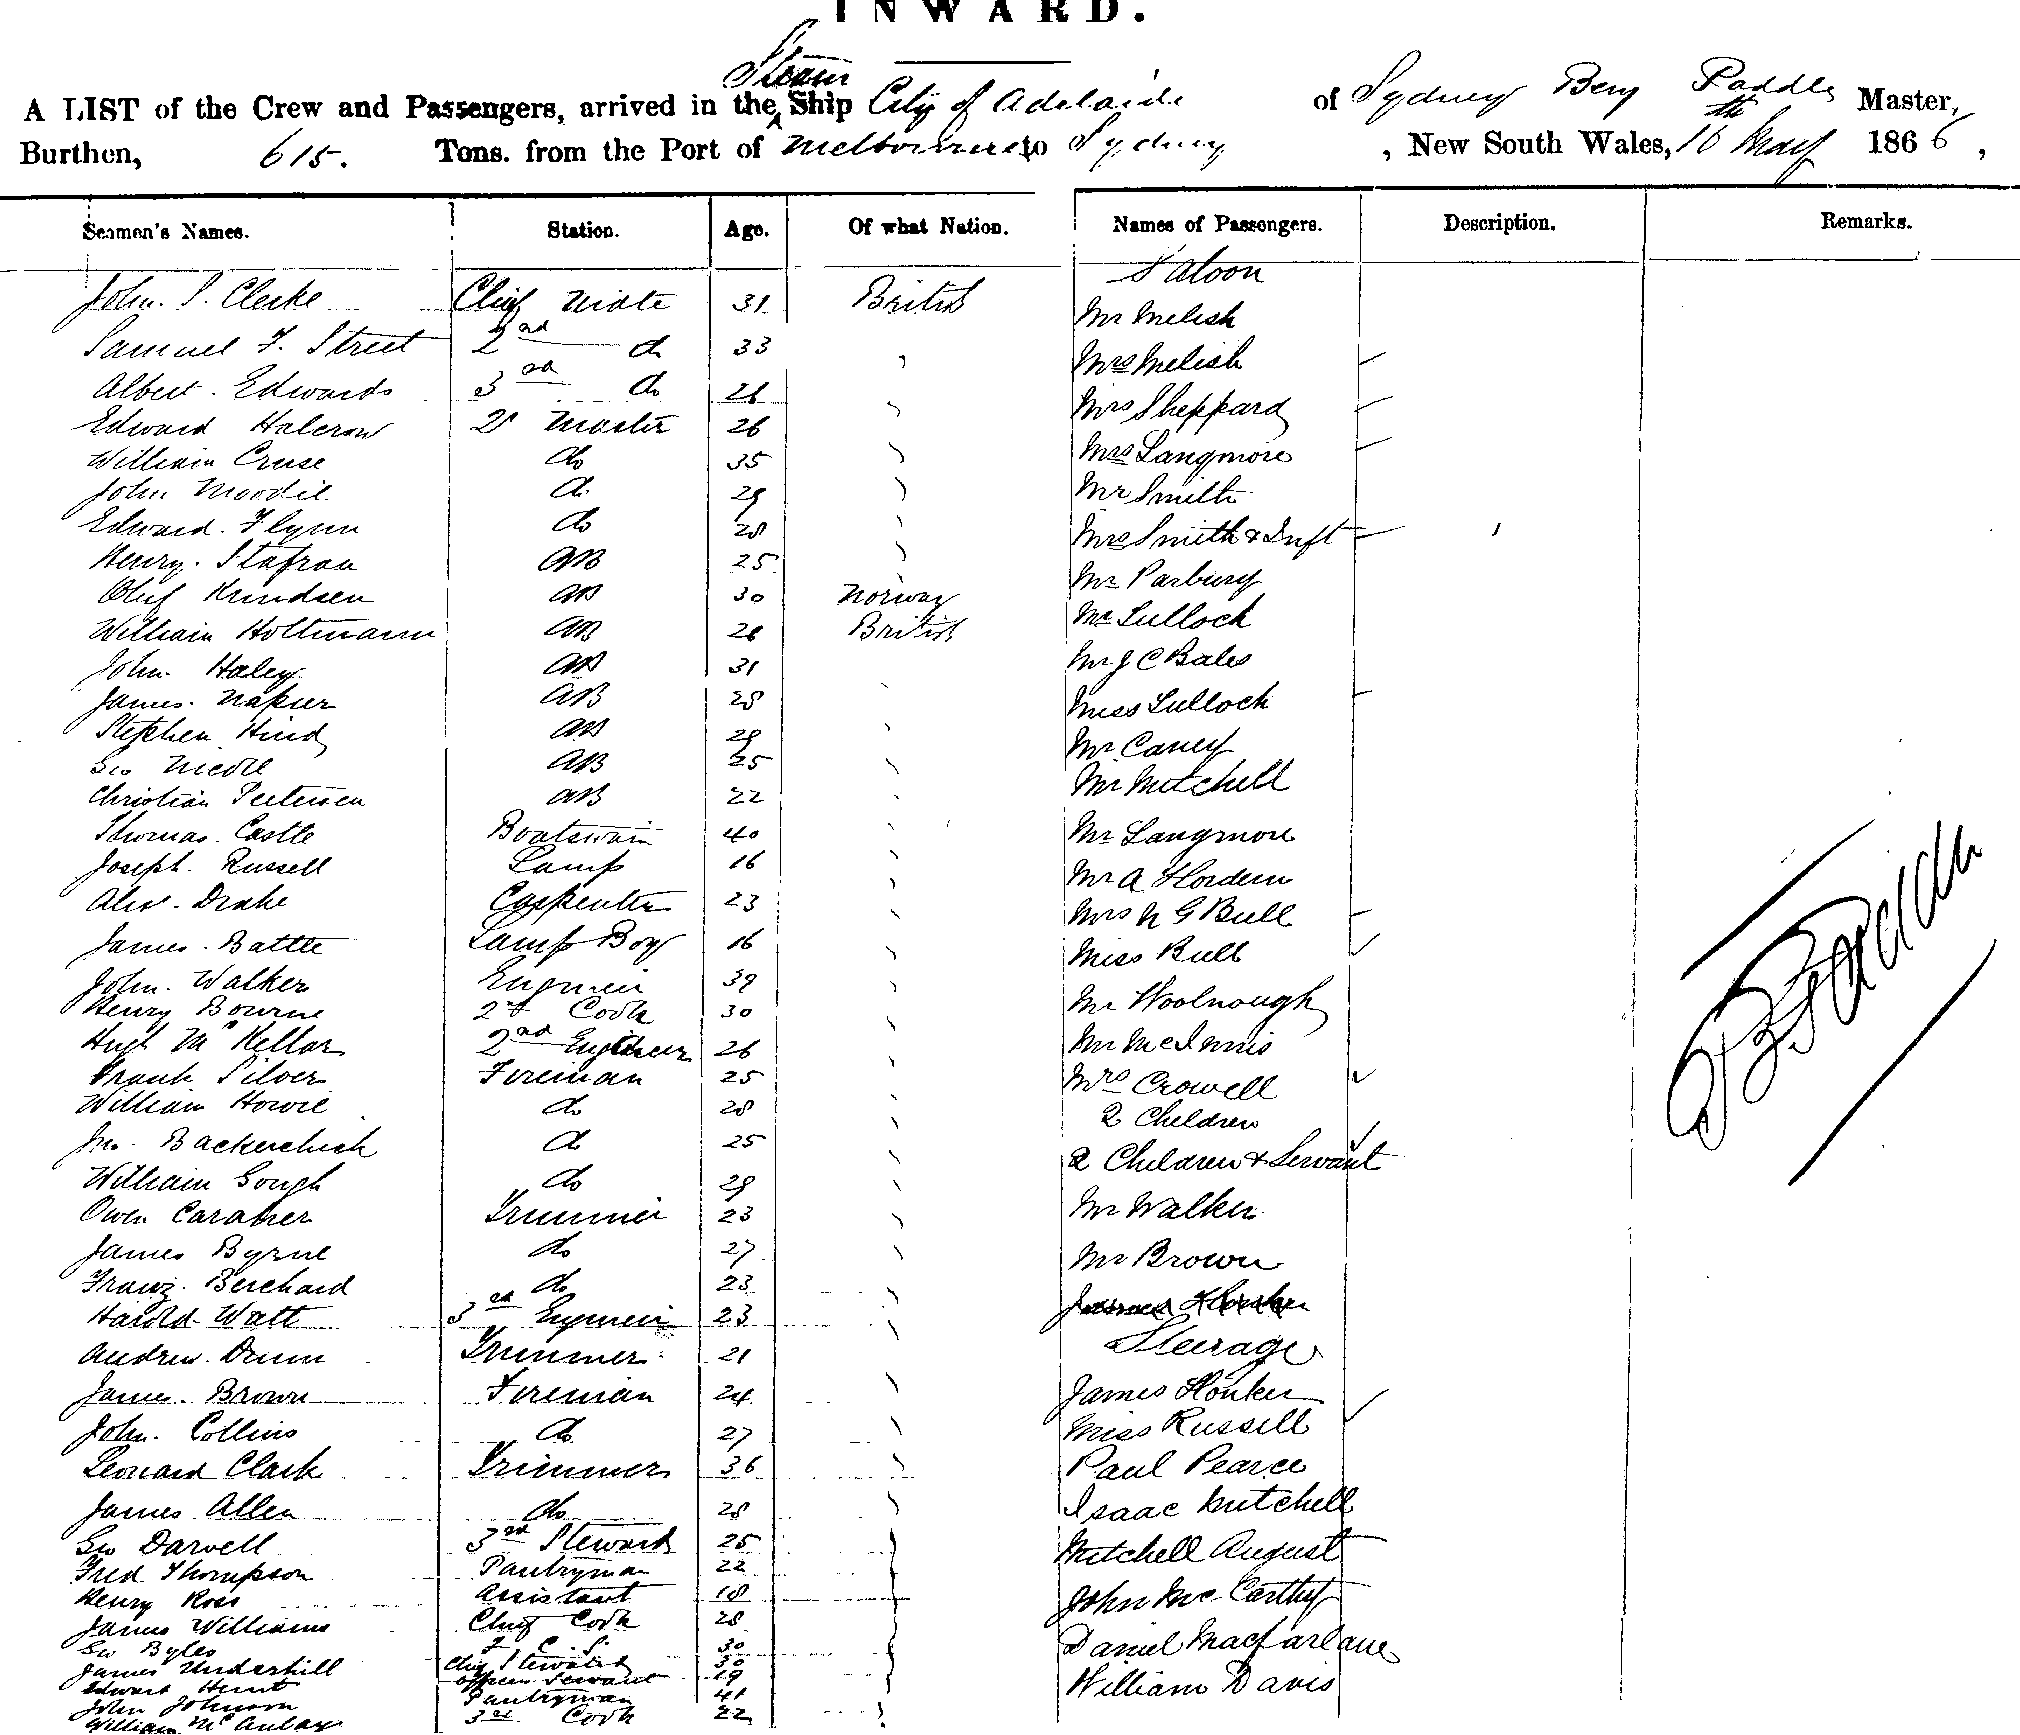 INWARD.
Steam
A LIST of the Crew and Passengers, arrived in the Ship City of Adelaide of Sydney Benj Paddle Master,
Burthen, 615. Tons. from the Port of Melbourne to Sydney, New South Wales, 16th May 1866,
Seamen's Names. Station. Age. Of what Nation. Names of Passengers. Description. Remarks.
Saloon
John. S. Clerke Chief Mate 31 British Mr Melish
Samuel F. Street 2nd do 33 Mrs Melish
Albert. Edwards 3rd do 26 Mrs Sheppard
Edward Halcrow 2r Master 26 Mrs Langmore
William Cruse do 35
John Moodie do 29 Mr Smith
Edward. Flynn do 28 Mrs Smith & Inft
Henry. AB 25 Mr Parbury
Oluf Knudsen AB 30 Norway
William Holtmann AB 26 British Mr Lulloch
John. Haley AB 31 Mr J C Bales
James. Napier AB 28 Miss Lulloch
Stephen Hind AB 29 Mr Caney
Geo AB 25 Mr Mitchell
Christian Petersen AB 22
Thomas. Castle Boatswain 40 Mr Langmore
Joseph. Russell Lamps 16
Alex. Drake Carpenter 23 Mr A Hordern
James. Battle Lamp Boy 16 Mrs N G Bull
John. Walker Engineer 39 Miss Bull
Henry Bourne 2d Cook 30 Mr Woolnough
Hugh McKellar 2nd Engineer 26 Mr McInnis
Frank Silver Fireman 25 Mrs Crowell
William Howie do 28 2 Children
Jno. do 25 2 Children & Servant
William Gough do 29 Mr Walker
Owen Caraher Trimmer 23
James Byrne do 27 Mr Brown
Franz. Berchard do 23
Harold Watt 3rd Engineer 23
Andrew. Dunn Trimmer 21 Steerage
James. Brown Fireman 24 James Honker
John. Collins do 27 Miss Russell
Leonard Clark Trimmer 36 Paul Pearce
James Allen do 28 Isaac Mitchell
Geo Darvell 3rd Steward 25 Mitchell August
Fred Thompson Pantryman 22
Henry Ross Assistant 18 John McCarthy
James Williams Chief Cook 28
Geo Byles F. C. S. 30 Daniel Macfarlane
James Underhill Chief Steward 30
Edward Hunt Officers Servant 19 William Davis
John Johnson Pantryman 41
William McAulay 3rd Cook 22